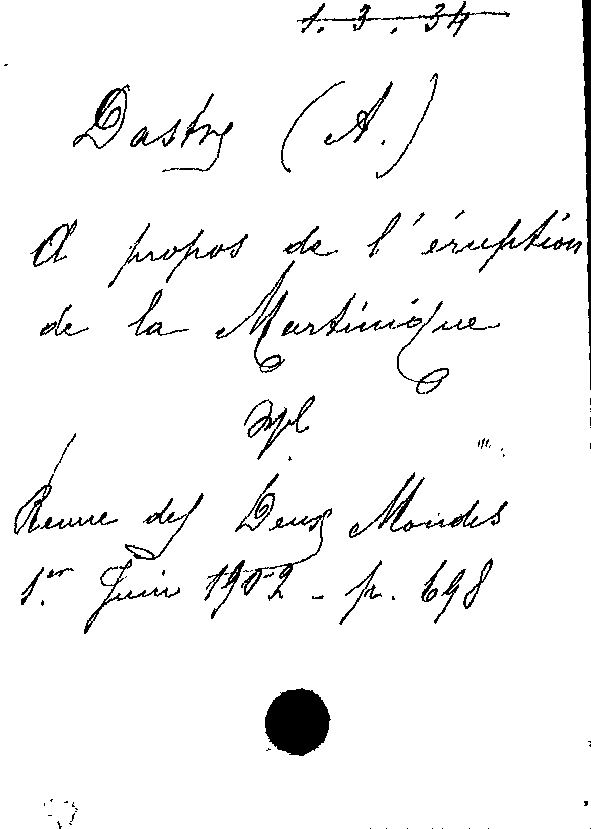 1.3.34
Dastre (A.)
A propos de l'éruption
de la Martinique
Revue des Deux Mondes
1.er Juin 1902 - p. 698